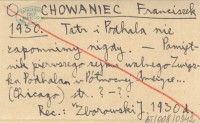 CHOWANIEC Franciszek
1930. Tatr i Podhala nie
zapomnimy nigdy. — Pamięt-
nik pierwszego sejmu walnego Związ-
ku Podhalan w Północnej Ameryce...
(Chicago) str. ?-?.
Rec.: Zborowski J. 1930